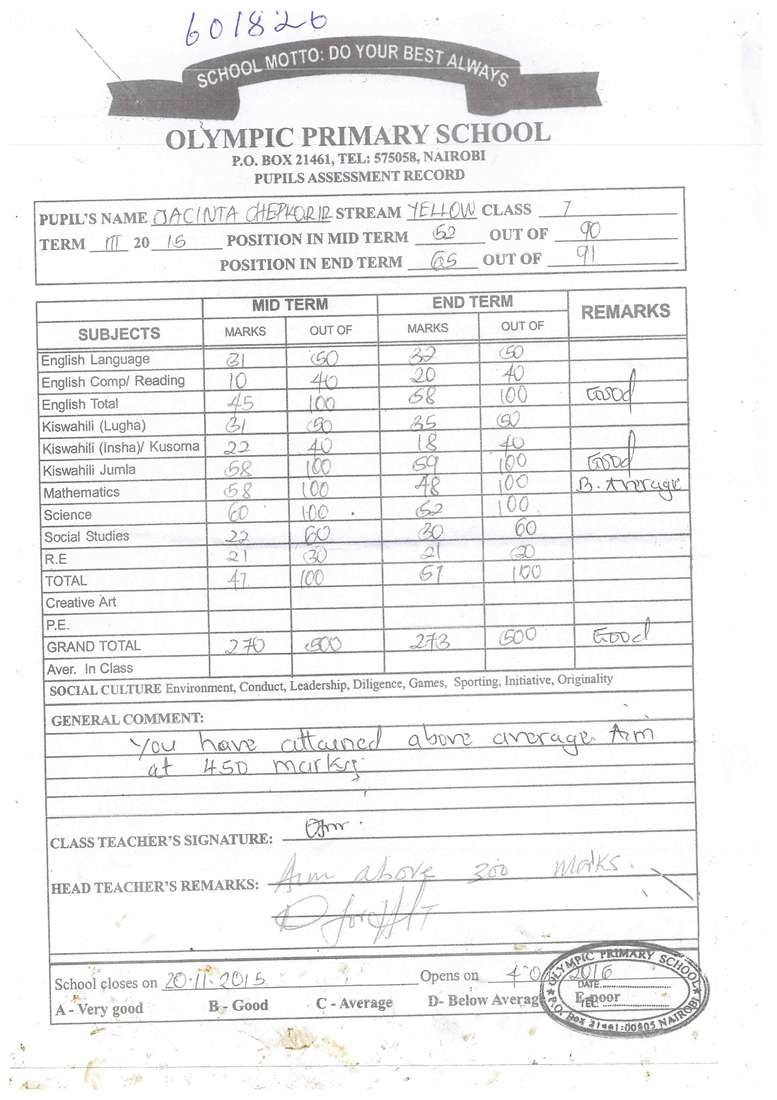 601826
SCHOOL MOTTO: DO YOUR BEST ALWAYS
OLYMPIC PRIMARY SCHOOL
P.O. BOX 21461, TEL: 575058, NAIROBI
PUPILS ASSESSMENT RECORD
PUPIL'S NAME JACINTA CHEPKORIR STREAM YELLOW CLASS 7
TERM III 20 15 POSITION IN MID TERM 52 OUT OF 90
POSITION IN END TERM 65 OUT OF 91
MID TERM END TERM REMARKS
SUBJECTS MARKS OUT OF MARKS OUT OF
English Language 31 50 32 50
English Comp/ Reading 10 40 20 40
English Total 45 100 58 100 Good
Kiswahili (Lugha) 31 50 35 50
Kiswahili (Insha)/ Kusoma 22 40 18 40
Kiswahili Jumla 58 100 59 100 Good
Mathematics 58 100 48 100 B. Average
Science 60 100 52 100
Social Studies 22 60 30 60
R.E 21 30 21 30
TOTAL 47 100 57 100
Creative Art
P.E.
GRAND TOTAL 270 500 273 500 Good
Aver. In Class
SOCIAL CULTURE Environment, Conduct, Leadership, Diligence, Games, Sporting, Initiative, Originality
GENERAL COMMENT:
You have attained above average. Aim
at 450 marks
CLASS TEACHER'S SIGNATURE:
HEAD TEACHER'S REMARKS: Aim above 300 marks.
for H/T
School closes on 20.11.2015 Opens on 2016
A - Very good B - Good C - Average D- Below Average E-poor
OLYMPIC PRIMARY SCHOOL
DATE
TEL:
P.O. Box 21461-00505 NAIROBI